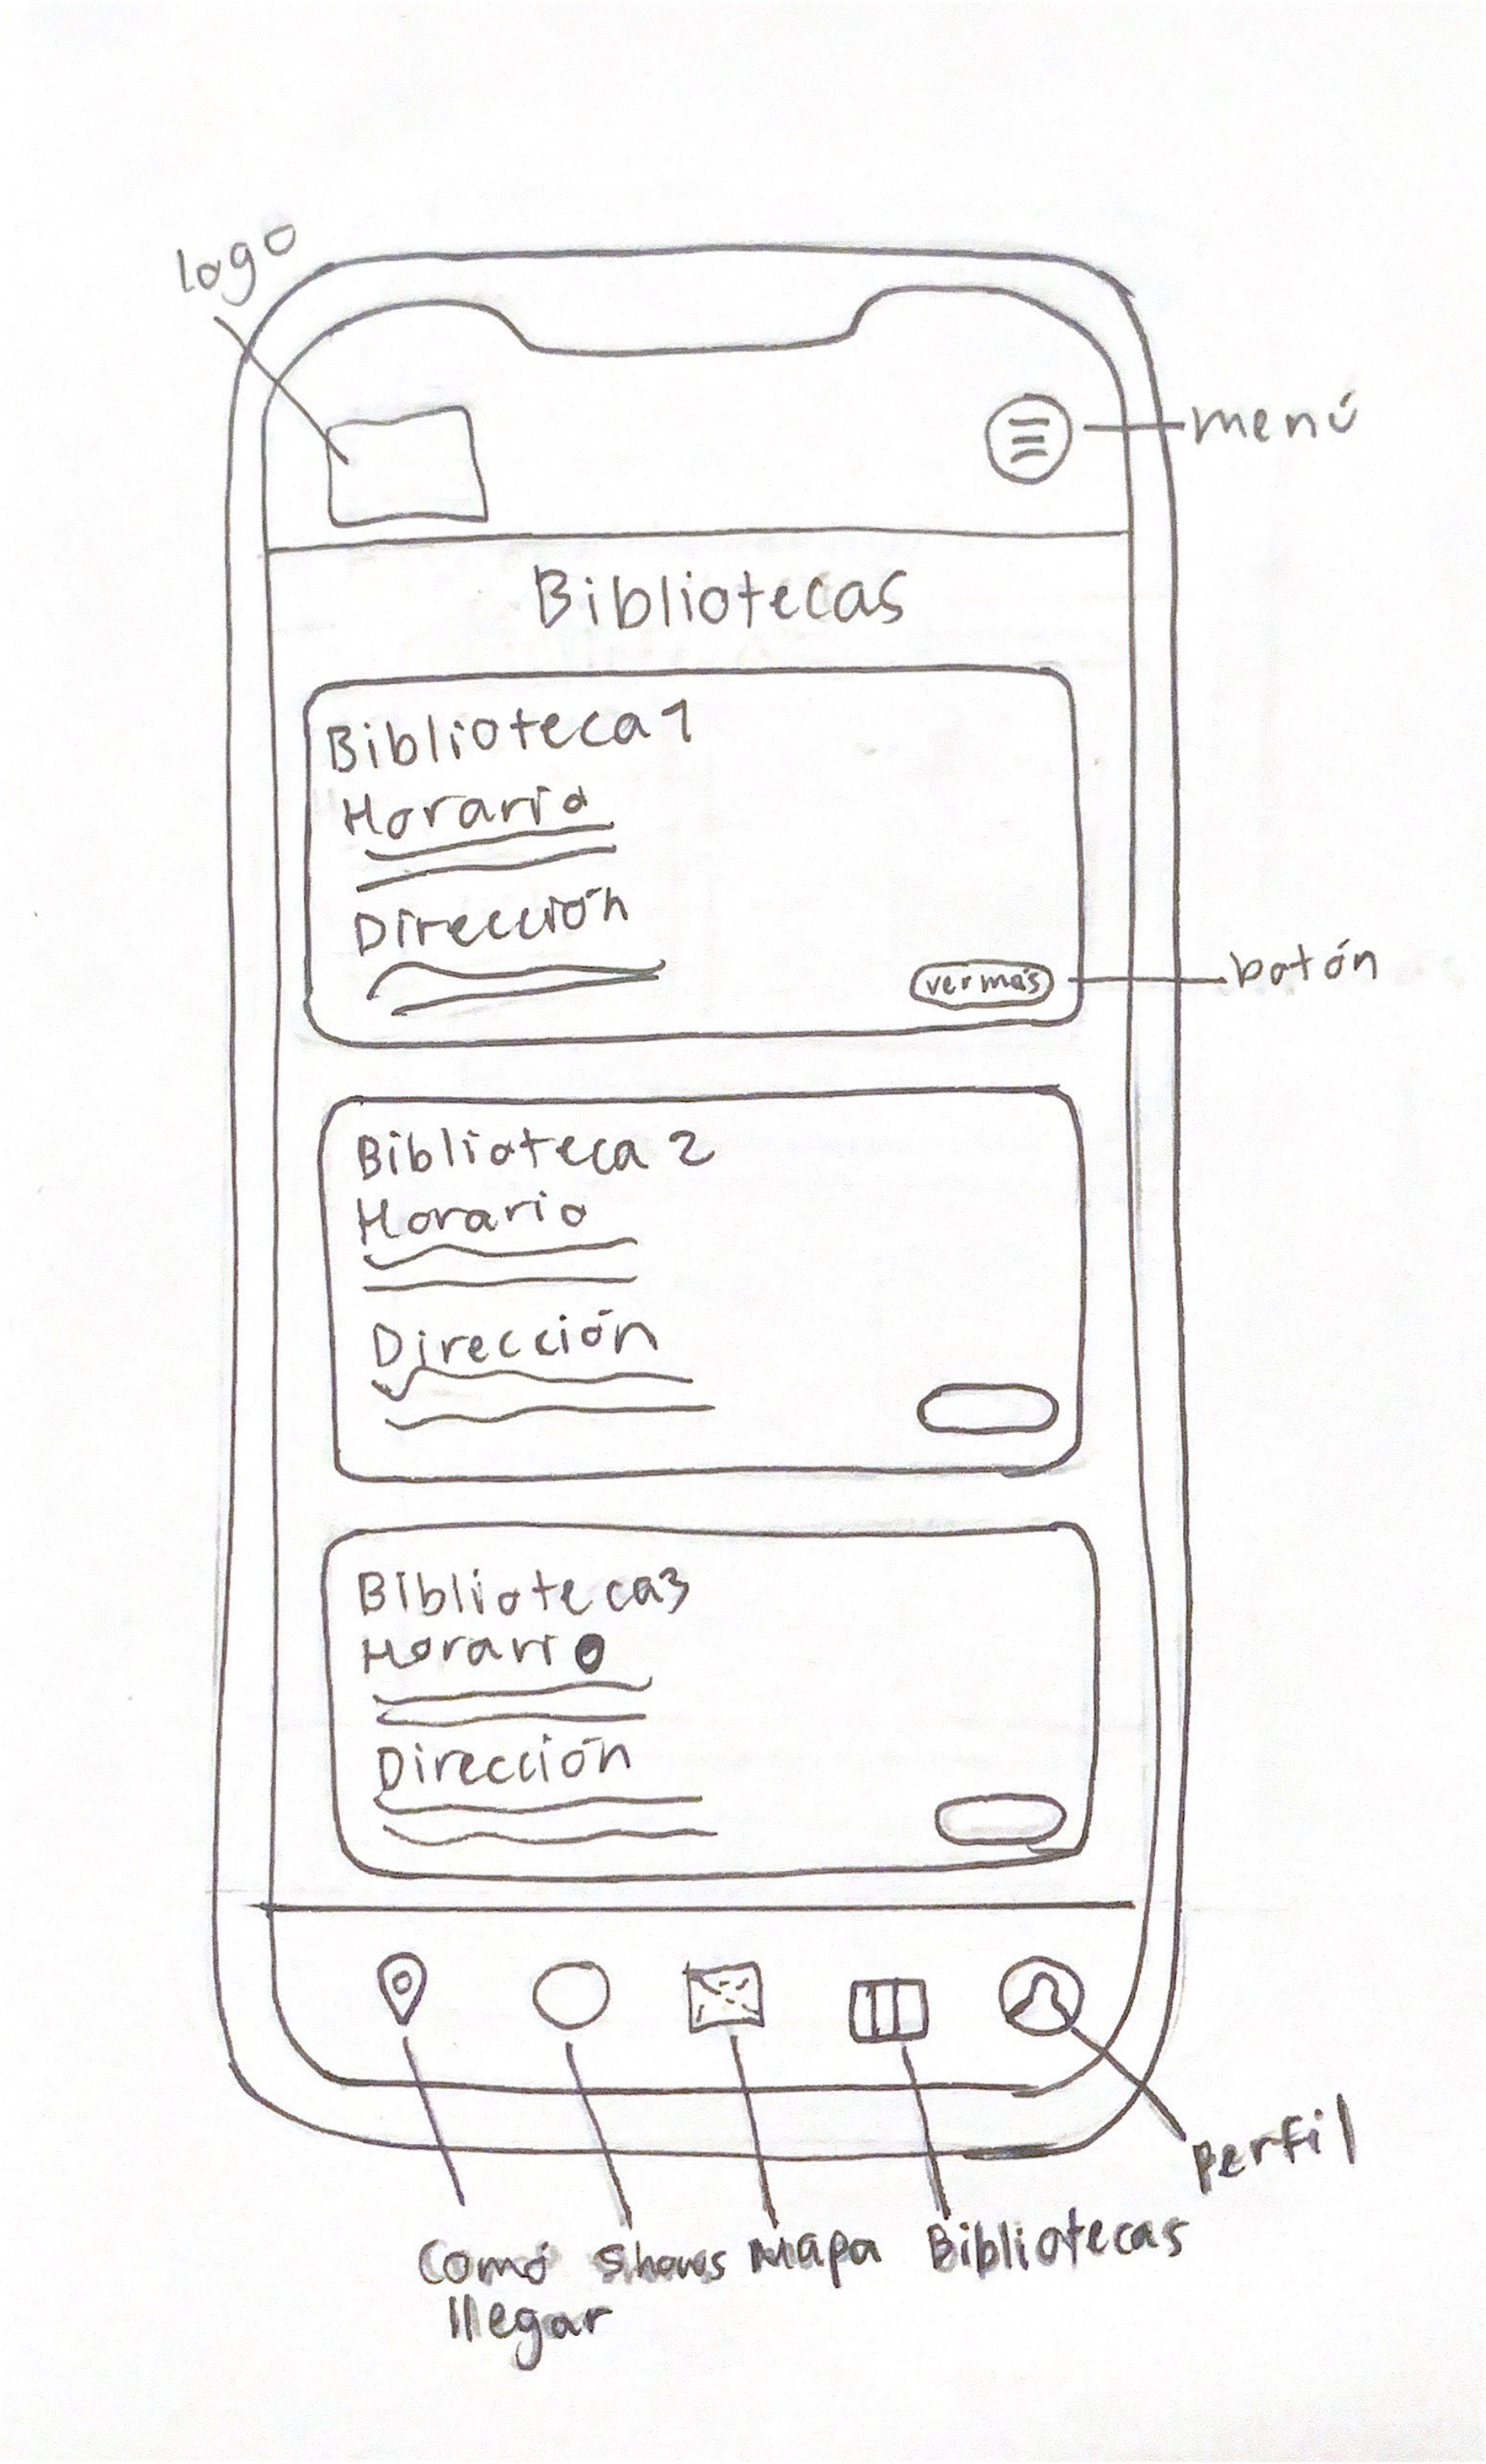 logo
menú
Bibliotecas
Biblioteca 1
Horario
Dirección
ver más
botón
Biblioteca 2
Horario
Dirección
Biblioteca 3
Horario
Dirección
Comó llegar
Shows
Mapa
Bibliotecas
Perfil